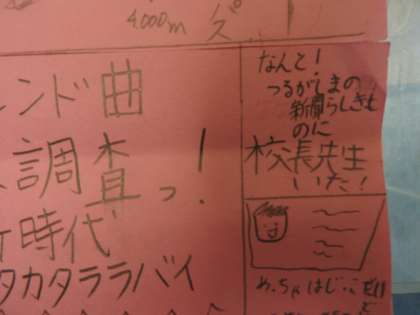 4.000m
ズ
ンド曲
調査っ!
時代
タカタララバイ
なんと!
つるがしまの
新聞らしきも
のに
校長先生
いた!
めっちゃはじ